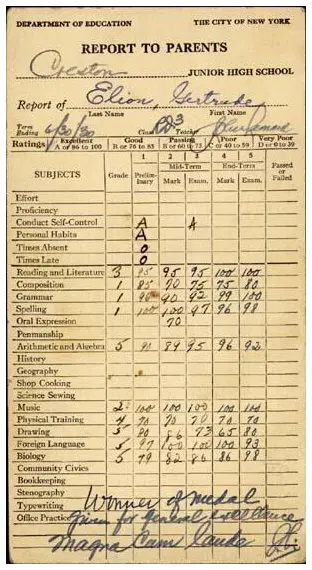 DEPARTMENT OF EDUCATION THE CITY OF NEW YORK
REPORT TO PARENTS
Creston JUNIOR HIGH SCHOOL
Report of Elion, Gertrude
Last Name First Name
Term Ending 6/30/30 Class RD3 Teacher
Ratings Excellent A or 86 to 100 Good B or 76 to 85 Passing B or 60 to 75 Poor C or 40 to 59 Very Poor D or 0 to 39
1 2 3 4 5
Mid-Term End-Term
SUBJECTS Grade Preliminary Mark Exam. Mark Exam. Passed or Failed
Effort
Proficiency
Conduct Self-Control A A
Personal Habits A
Times Absent 0
Times Late 0
Reading and Literature 3 95 95 95 100 100
Composition 1 85 70 75 75 80
Grammar 1 90 92 99 100
Spelling 1 100 100 97 96 98
Oral Expression 70
Penmanship
Arithmetic and Algebra 5 91 89 95 96 92
History
Geography
Shop Cooking
Science Sewing
Music 2 100 100 100 100 100
Physical Training 4 70 70 70 70 70
Drawing 5 80 86 73 65 80
Foreign Language 5 97 100 100 100 93
Biology 5 79 82 86 86 98
Community Civics
Bookkeeping
Stenography
Typewriting Winner of Medal
Office Practice Given for General Excellence
Magna Cum Lauda